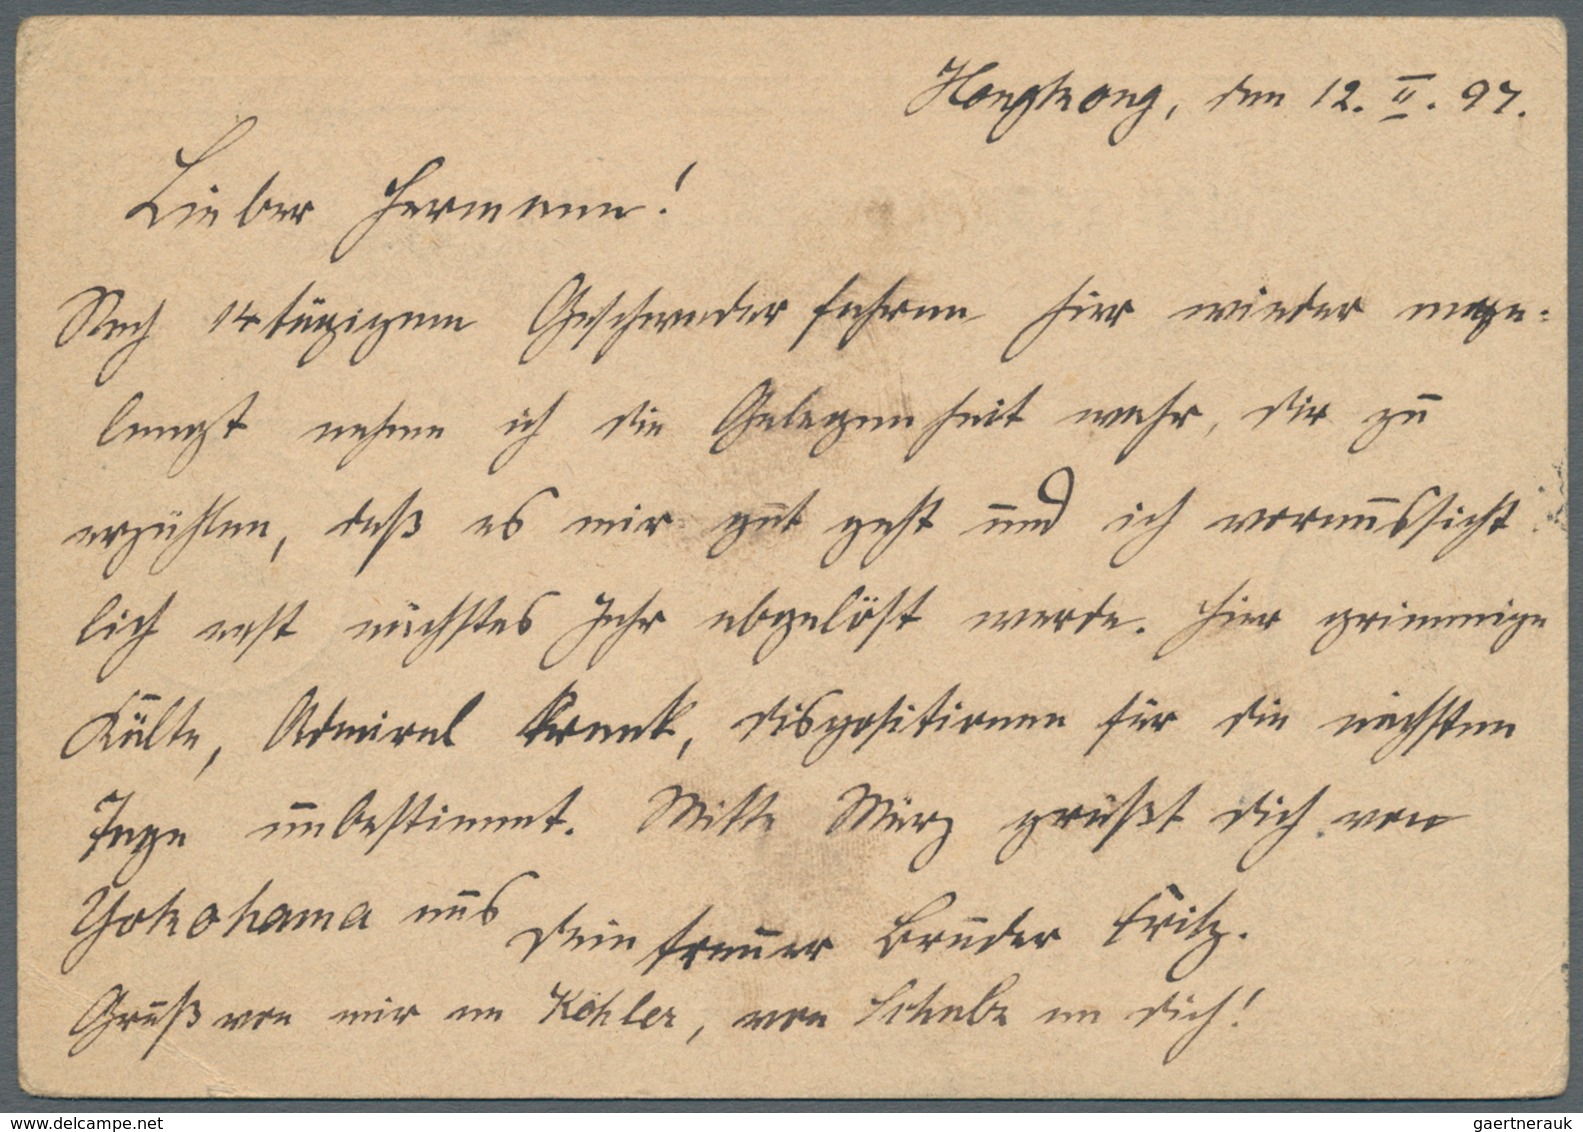 Hongkong, den 12. II. 97.
Lieber Hermann!
Nach 14 tägigem Geschwaderfahren hier wieder ange-
langt nehme ich die Gelegenheit wahr, dir zu
erzählen, daß es mir gut geht und ich voraussicht
lich erst nächstes Jahr abgelöst werde. Hier grimmige
Kälte, Admiral krank, Dispositionen für die nächsten
Tage unbestimmt. Mitte März grüßt dich von
Yokohama aus
Dein treuer Bruder Fritz.
Gruß von mir an Köhler, von an dich!
gaertnerauk